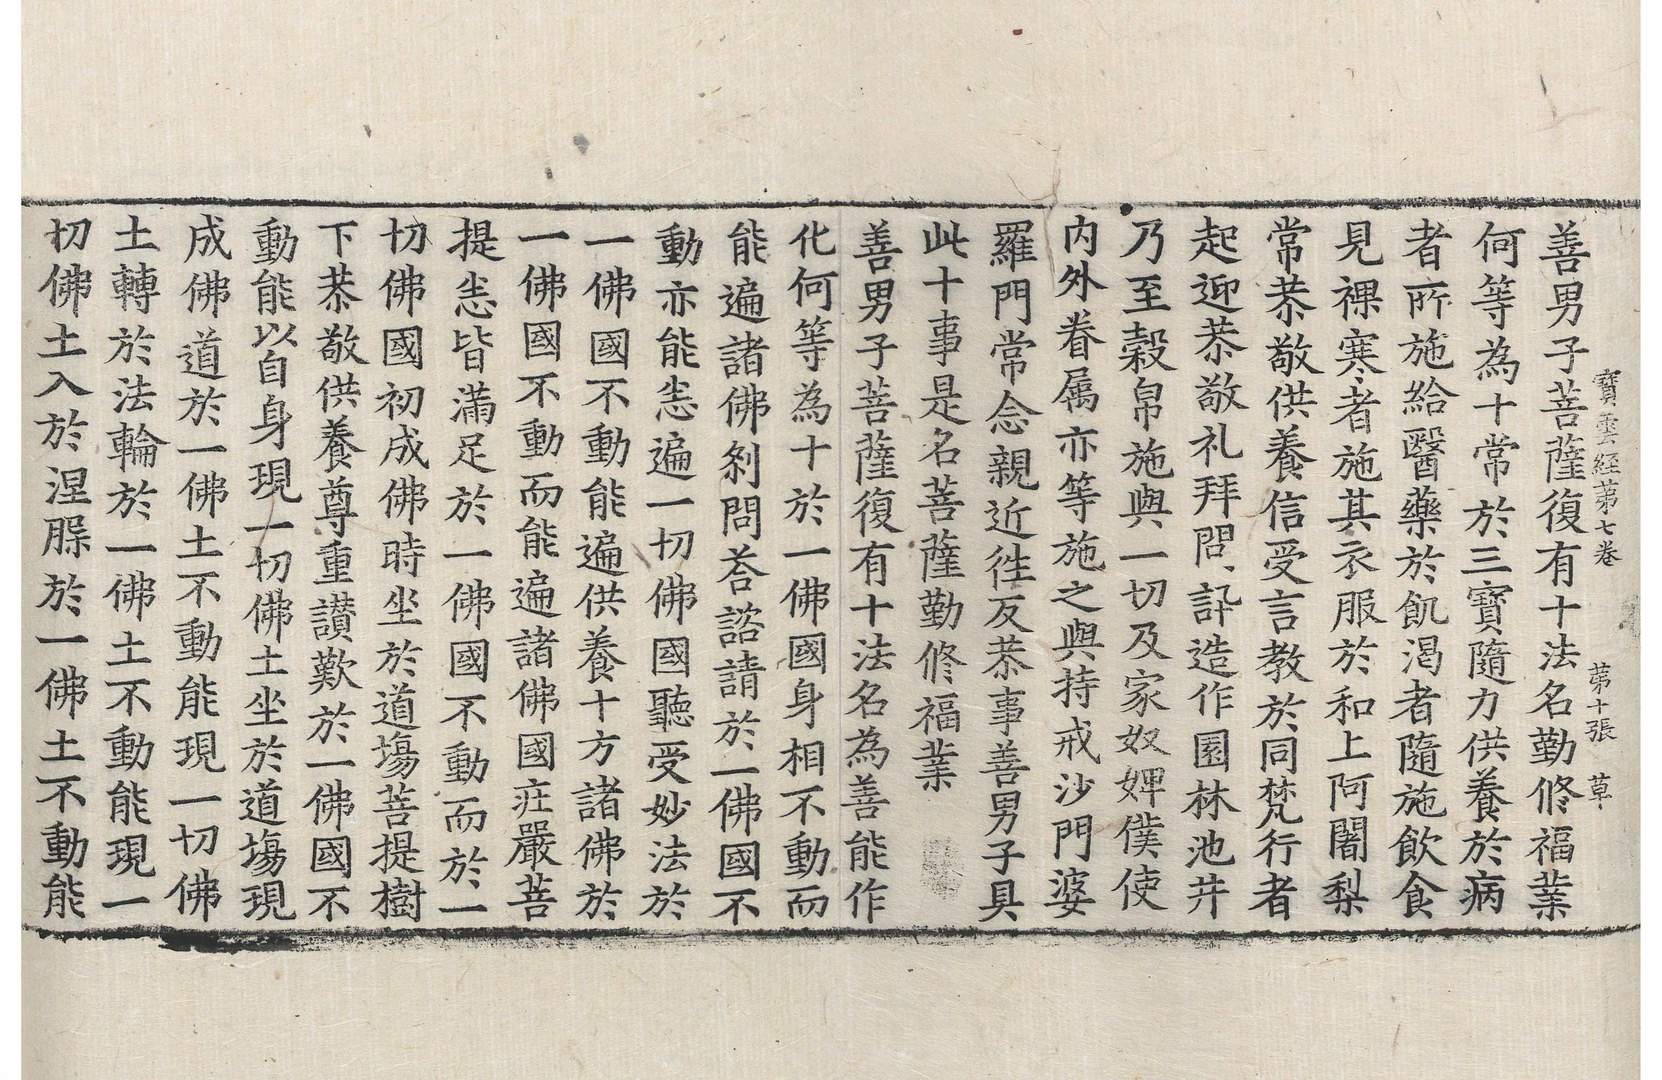 寶雲経苐七卷　苐十張　草
善男子菩薩復有十法名勤修福業
何等為十常於三寶隨力供養於病
者所施給醫藥於飢渴者隨施飲食
見裸寒者施其衣服於和上阿闍梨
常恭敬供養信受言教於同梵行者
起迎恭敬礼拜問訊造作園林池井
乃至穀帛施與一切及家奴婢僕使
内外眷属亦等施之與持戒沙門婆
羅門常念親近徃反恭事善男子具
此十事是名菩薩勤修福業
善男子菩薩復有十法名為善能作
化何等為十於一佛國身相不動而
能遍諸佛剎問荅諮請於一佛國不
動亦能悉遍一切佛國聽受妙法於
一佛國不動能遍供養十方諸佛於
一佛國不動而能遍諸佛國莊嚴菩
提悉皆滿足於一佛國不動而於一
切佛國初成佛時坐於道塲菩提樹
下恭敬供養尊重讃歎於一佛國不
動能以自身現一切佛土坐於道塲現
成佛道於一佛土不動能現一切佛
土轉於法輪於一佛土不動能現一
切佛土入於涅槃於一佛土不動能